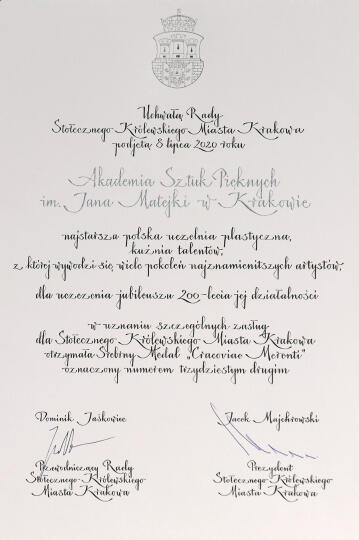 Uchwałą Rady
Stołecznego Królewskiego Miasta Krakowa
podjętą 8 lipca 2020 roku
Akademia Sztuk Pięknych
im. Jana Matejki w Krakowie
najstarsza polska uczelnia plastyczna,
kuźnia talentów,
z której wywodzi się wiele pokoleń najznamienitszych artystów,
dla uczczenia jubileuszu 200-lecia jej działalności
w uznaniu szczególnych zasług
dla Stołecznego Królewskiego Miasta Krakowa
otrzymała Srebrny Medal „Cracoviae Merenti”
oznaczony numerem trzydziestym drugim
Dominik Jaśkowiec
Jacek Majchrowski
Przewodniczący Rady
Stołecznego Królewskiego
Miasta Krakowa
Prezydent
Stołecznego Królewskiego
Miasta Krakowa